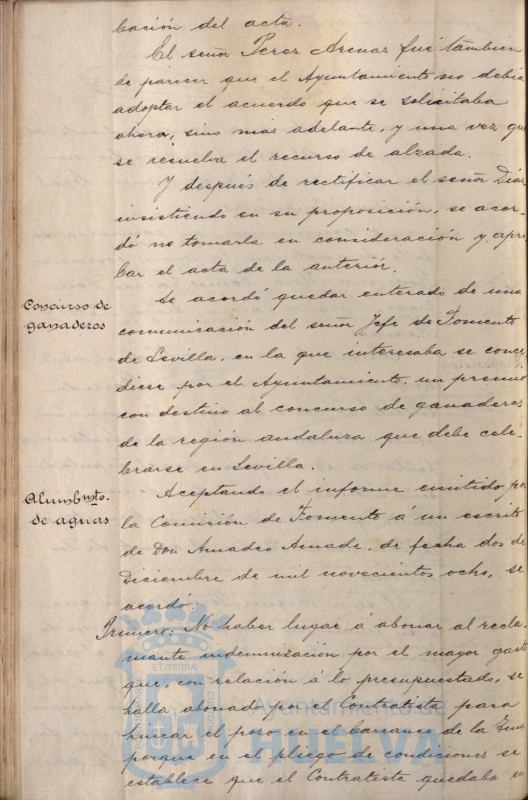 bación del acta.
El señor Perez Arenas fué tambien
de parecer que el Ayuntamiento no debia
adoptar el acuerdo que se solicitaba
ahora, sino mas adelante, y una vez que
se resuelva el recurso de alzada.
Y después de rectificar el señor Diaz
insistiendo en su proposición, se acor
dó no tomarla en consideración y apro
bar el acta de la anterior.
Concurso de
ganaderos
Se acordó quedar enterado de una
comunicación del señor Jefe de Fomento
de Sevilla, en la que interesaba se conce
diese por el Ayuntamiento, un premio
con destino al concurso de ganaderos
de la región andaluza que debe cele-
brarse en Sevilla.
Alumbmto.
de aguas
Aceptando el informe emitido por
la Comisión de Fomento á un escrito
de Don Amadeo Amade, de fecha dos de
Diciembre de mil novecientos ocho, se
acordó:
Primero. No haber lugar á abonar al recla
mante indemnización por el mayor gasto
que, con relación á lo presupuestado, se
halla abonado por el Contratista para
hincar el pozo en el barranco de la
porque en el pliego de condiciones se
establece que el Contratista quedaba
Ayuntamiento de
HUELVA